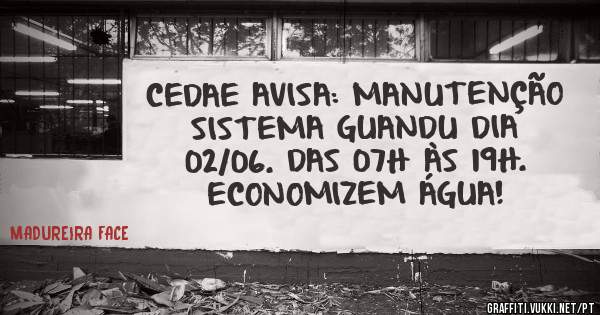 CEDAE AVISA: MANUTENÇÃO
SISTEMA GUANDU DIA
02/06. DAS 07H ÀS 19H.
ECONOMIZEM ÁGUA!
MADUREIRA FACE
GRAFFITI.VUKKI.NET/PT